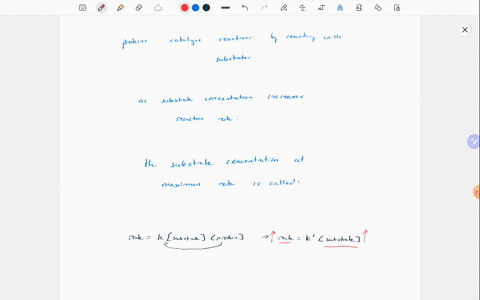 proteins catalyze reactions by reacting with
substrates
as substrate concentration increases
reaction rate:
the substrate concentration at
maximum rate is called:
rate = k [substrate] [protein] → ↑ rate = k' [substrate] ↑